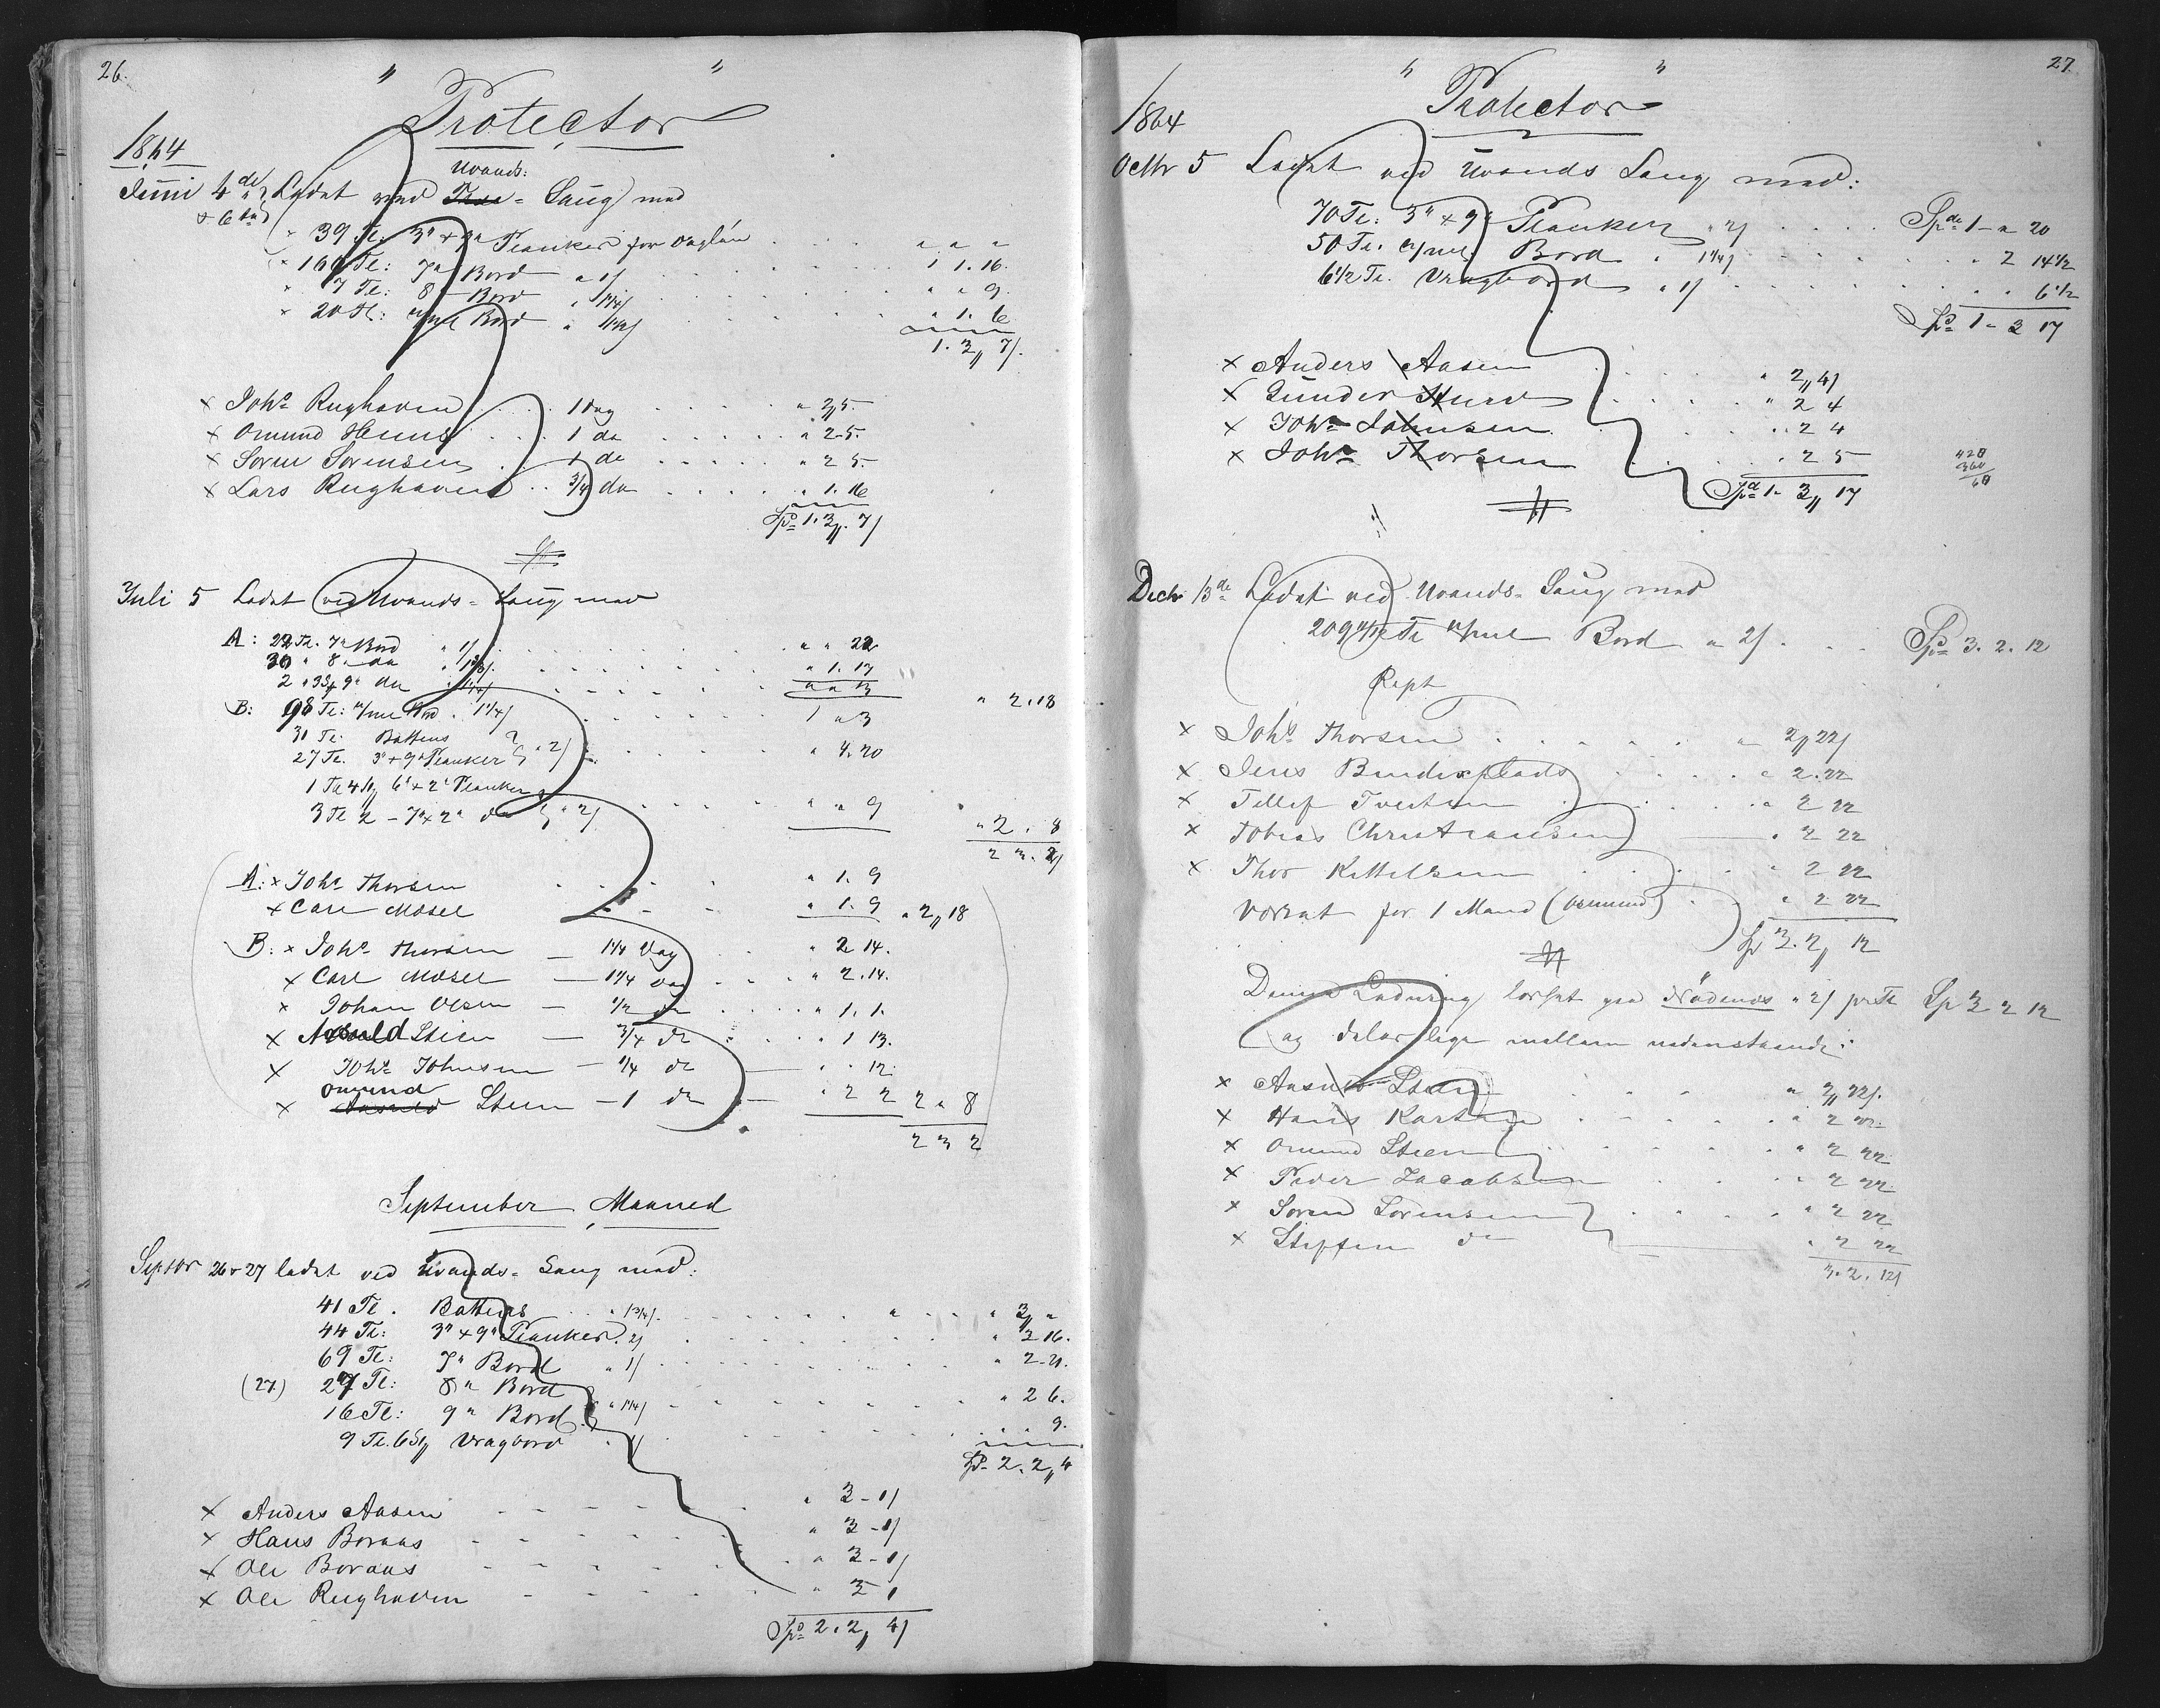 26.
" Protector "
1864
Uvands:
Juni 4de Ladet ved = Saug med
& 6te
39 Tl: 3" x 9" Planker for Daglön " " "
166 Tl: 7" Bord a 1/ 1 1. 16.
7 Tl: 8" Bord a 1¼/ " " 9.
20 Tl: Bord " " 1. 6
1. 3 " 7/.
x Johs Rughaven 1 Dag " 2 " 5.
x Omund 1 do " 2 - 5.
x Soren Sorensen 1 do " 2 5.
x Lars Rughaven ¾ do " 1. 16
Spd 1. 3 ". 7/
Juli 5 Ladet ved Uvands = Saug med
A: 22 Tl. 7" Bord " 1/ " " 22
30 " 8 " do " 1. 17
2 " 9" do " " 3
" 2. 18
B: 98 Tl: Bord . 1¼/ 1 " 3
31 Tl. Battens
27 Tl. 3" x 9" Planker " 2/ " 4. 20
1 Tl 4 St 6" x 2" Planker
3 Tl 2 - 7" x 2" do " 2/ " " 9
" 2. " 8
2 3. 2/
A: x Johs Thorsen " 1. 9
x Carl Mosel " 1. 9 " 2 " 18
B: x Johs Thorsen — 1¼ Dag " 2 14.
x Carl Mosel — 1¼ Dag " 2. 14.
x Johan Olsen — ½ do " 1. 1.
x Stien — ¾ do " 1 13.
x Johs Johnsen — ¼ do " " 12.
Omund
x Stien — 1 do " 2 2 2 " 8
2 3 2
September Maaned
Septbr 26 & 27 ladet ved Uvands = Saug med:
41 Tl. Battens " 1¾/. " 3 " "
44 Tl: 3" x 9" Planker " 2/ " 2 16.
69 Tl: 7" Bord " 1/ " 2 - 21.
(27) 27 Tl: 8" Bord
16 Tl: 9" Bord " 1¼/ " 2 6.
9 Tl. 6 St Vragbord " 1/ 9.
Spd 2. 2 " 4
x Anders Aasen " 3 - 1/
x Hans Boraas " 3 - 1/
x Ole Boraas " 3 - 1/
x Ole Rughaven " 3 1
Spd 2. 2 " 4/
27.
" Protector "
1864
Octbr 5 Ladet ved Uvands Saug med:
70 Tl: 3" x 9" Planker " 2/ Spd 1 - " 20
50 Tl. Bord " 1¼/ " 2 14½
6½ Tl. Vragbord " 1/ " " 6½
Spd 1 - 3 17
x Anders Aasen " 2 " 4/
x Gunder " 2 4
x Johs Johnsen " 2 4
x Johs Thorsen " 2 5
Spd 1 - 3 " 17
428
360
68
Decbr 13de Ladet ved Uvands = Saug med
Bord " 2/ Spd 3. 2. 12
Rept
x Johs Thorsen " 2 " 22/
x Jens Bindersplads " 2. 22
x Tellef Tveiten " 2 22
x Tobias Christiansen " 2 22
x Thor Kittelsen " 2 22
Vorrat for 1 Mand (Omund) " 2 22
Sp 3. 2 " 12
Denne Ladning losset paa Nödenæs " 2/ pr Tl Sp 3 2 12
og delas lige mellem nedenstaaende:
x Stien " 2 " 22/.
x Hans " 2 22.
x Omund Stien " 2 22
x Peder Jacobsen " 2 22.
x Soren Sorensen " 2 22
x Steffen do " 2 22
3. 2. 12/